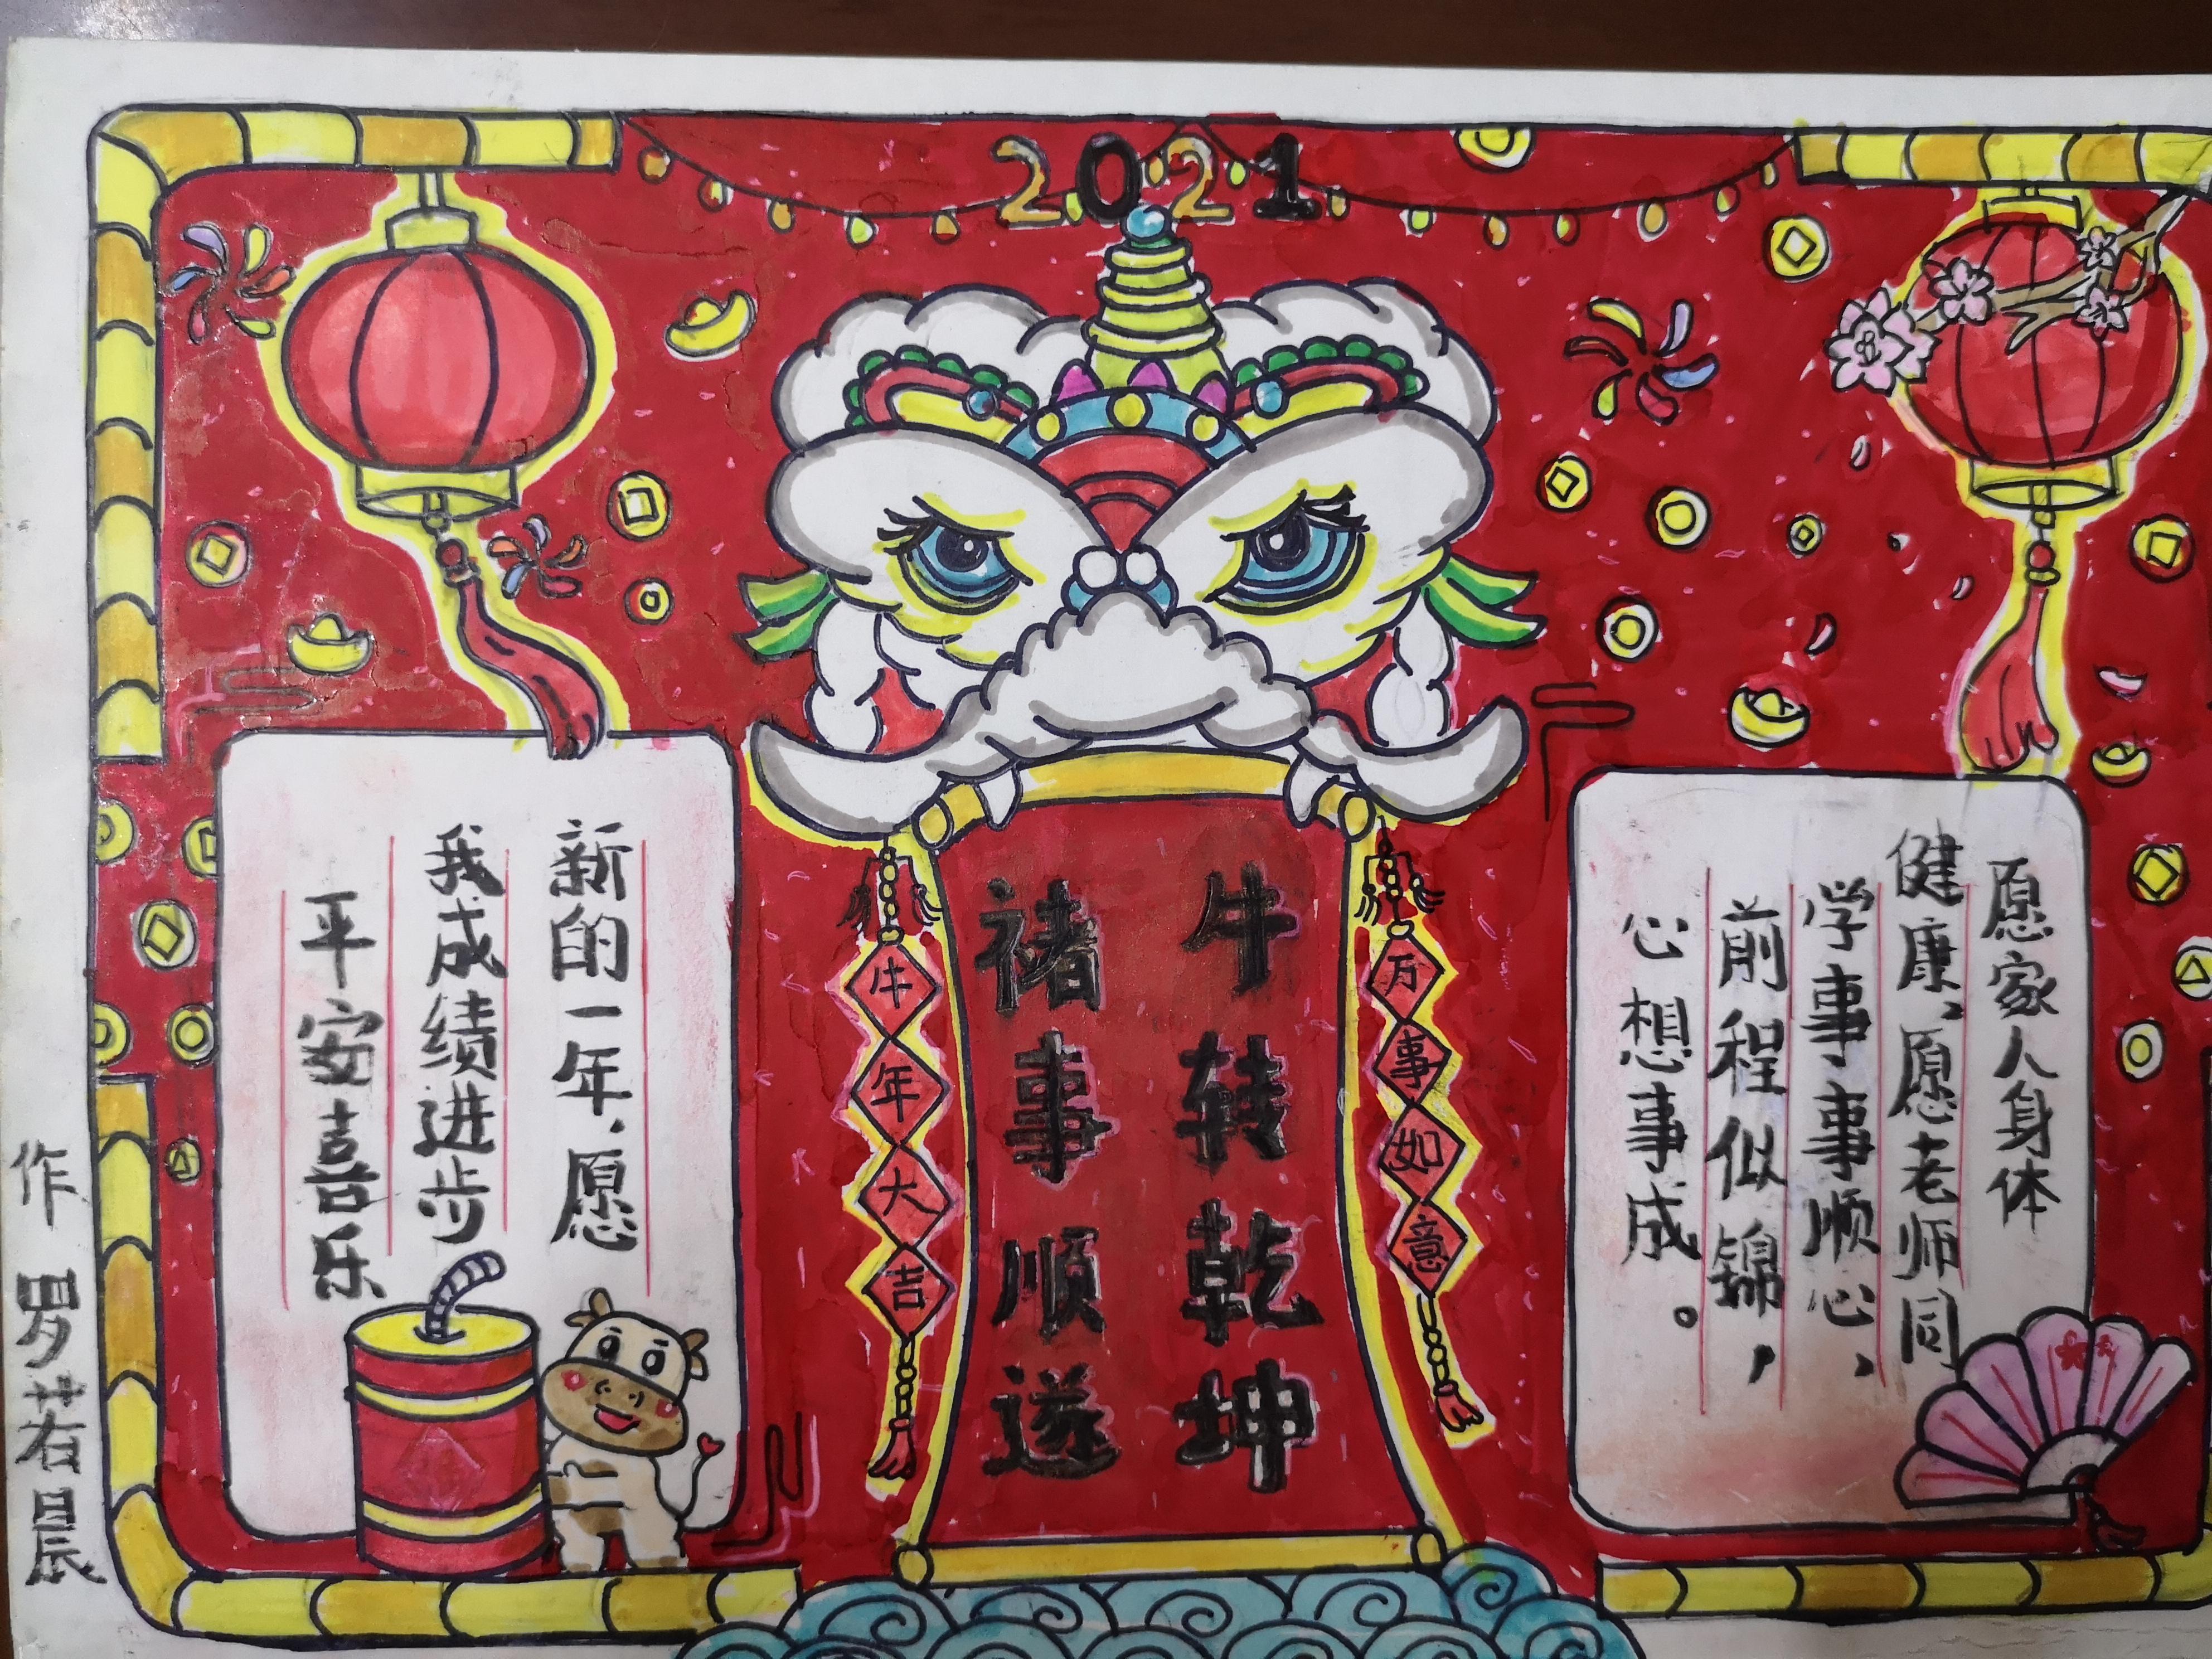 2021
愿家人身体
健康、愿老师同
学事事顺心、
前程似锦，
心想事成。
万事如意
牛转乾坤
禇事顺遂
牛年大吉
新的一年、愿
我成绩进步
平安喜乐
作 罗若晨